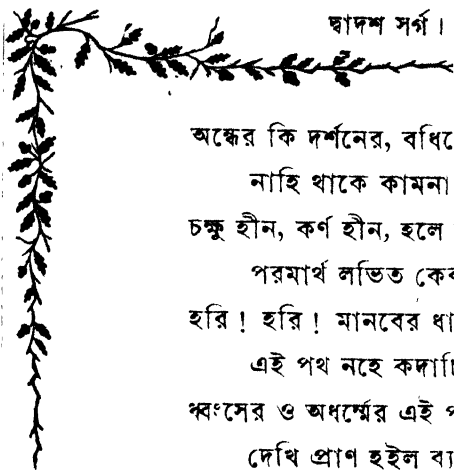 দ্বাদশ সর্গ।
অন্ধের কি দর্শনের,
নাহি থাকে কামনা
চক্ষু হীন, কর্ণ হীন, হলে
পরমার্থ লভিত
হরি ! হরি ! মানবের
এই পথ নহে
ধ্বংসের ও অধর্ম্মের এই
দেখি প্রাণ হইল